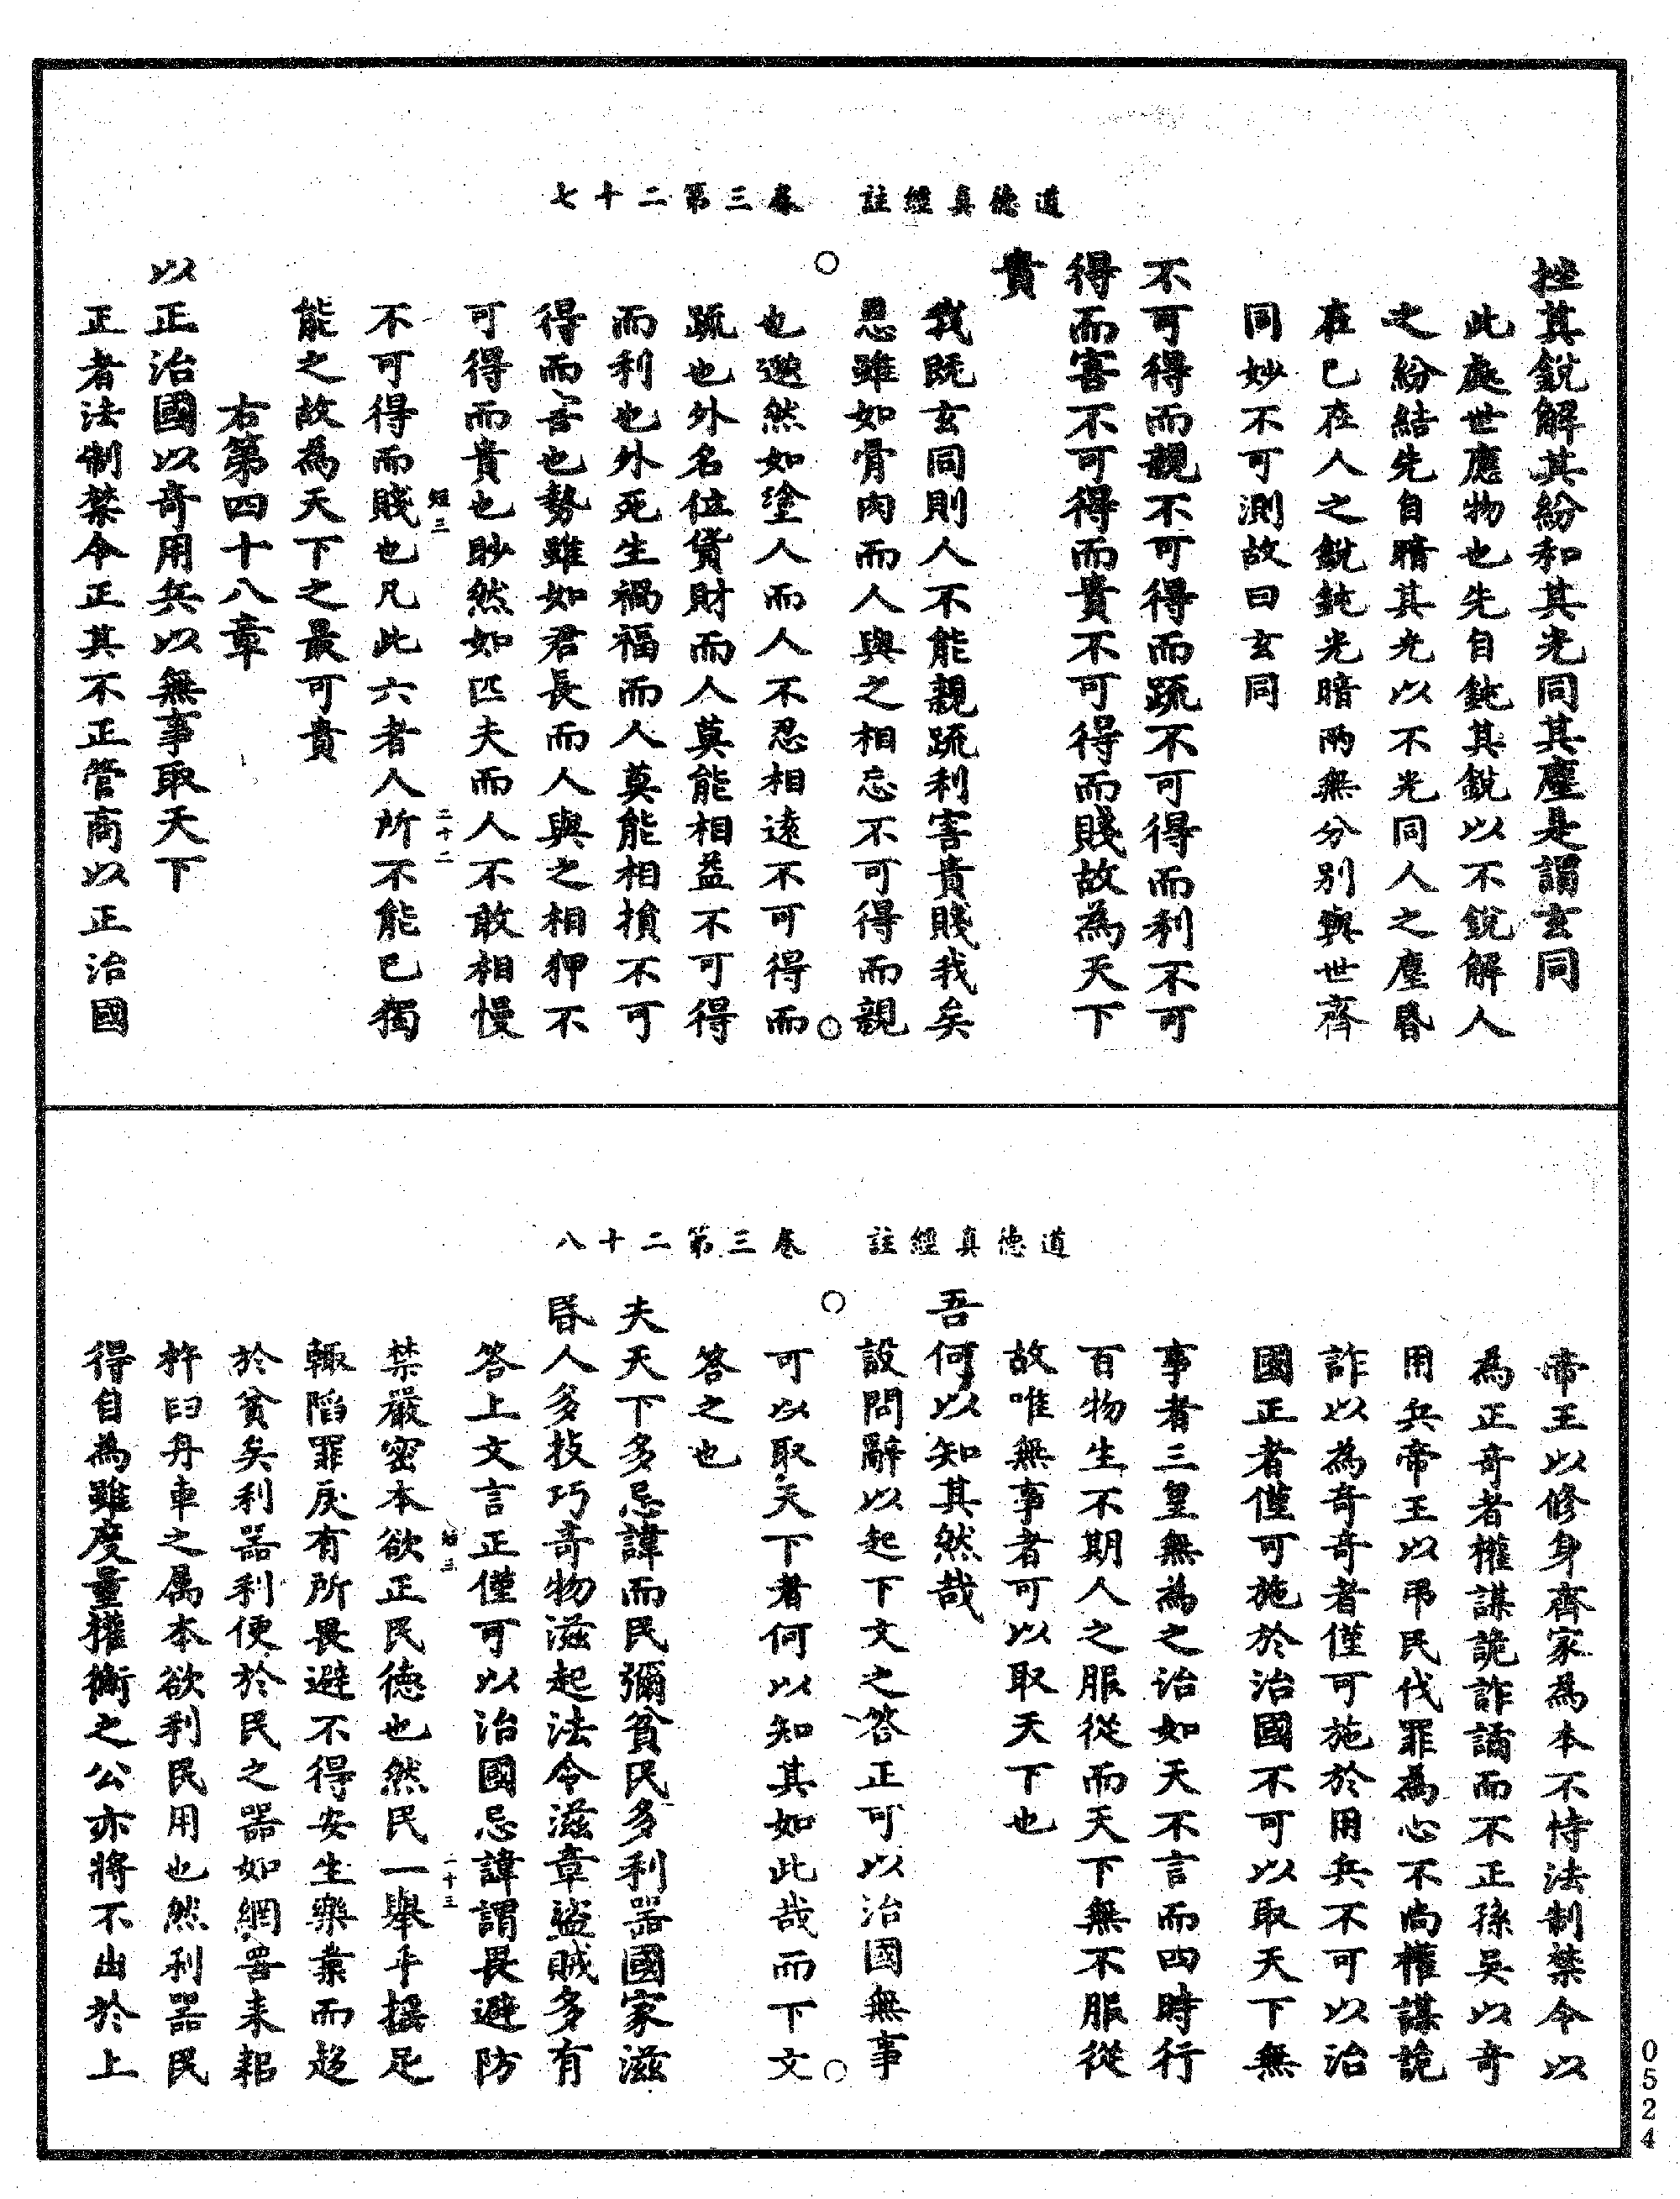 道德真經註　卷三第二十七
挫其銳解其紛和其光同其塵是謂玄同
此處世應物也先自鈍其銳以不銳解人
之紛結先自暗其光以不光同人之塵昏
在已在人之銳鈍光暗兩無分別與世齊
同妙不可測故曰玄同
不可得而親不可得而疏不可得而利不可
得而害不可得而貴不可得而賤故為天下
貴
我既玄同則人不能親疏利害貴賤我矣
恩雖如骨肉而人與之相忘不可得而親
也邈然如塗人而人不忍相遠不可得而
疏也外名位貨財而人莫能相益不可得
而利也外死生禍福而人莫能相損不可
得而害也勢雖如君長而人與之相狎不
可得而貴也眇然如匹夫而人不敢相慢
短三　二十二
不可得而賤也凡此六者人所不能已獨
能之故為天下之最可貴
右第四十八章
以正治國以奇用兵以無事取天下
正者法制禁令正其不正管商以正治國
道德真經註　卷三第二十八
帝王以修身齊家為本不恃法制禁令以
為正奇者權謀詭詐譎而不正孫吳以奇
用兵帝王以弔民伐罪為心不尚權謀詭
詐以為奇奇者僅可施於用兵不可以治
國正者僅可施於治國不可以取天下無
事者三皇無為之治如天不言而四時行
百物生不期人之服從而天下無不服從
故唯無事者可以取天下也
吾何以知其然哉
設問辭以起下文之答正可以治國無事
可以取天下者何以知其如此哉而下文
答之也
夫天下多忌諱而民彌貧民多利器國家滋
昏人多技巧奇物滋起法令滋章盜賊多有
答上文言正僅可以治國忌諱謂畏避防
短三　二十三
禁嚴密本欲正民德也然民一舉手搖足
輒陷罪戾有所畏避不得安生樂業而趍
於貧矣利器利便於民之器如網罟耒耜
杵臼舟車之属本欲利民用也然利器民
得自為雖度量權衡之公亦將不出於上
0524